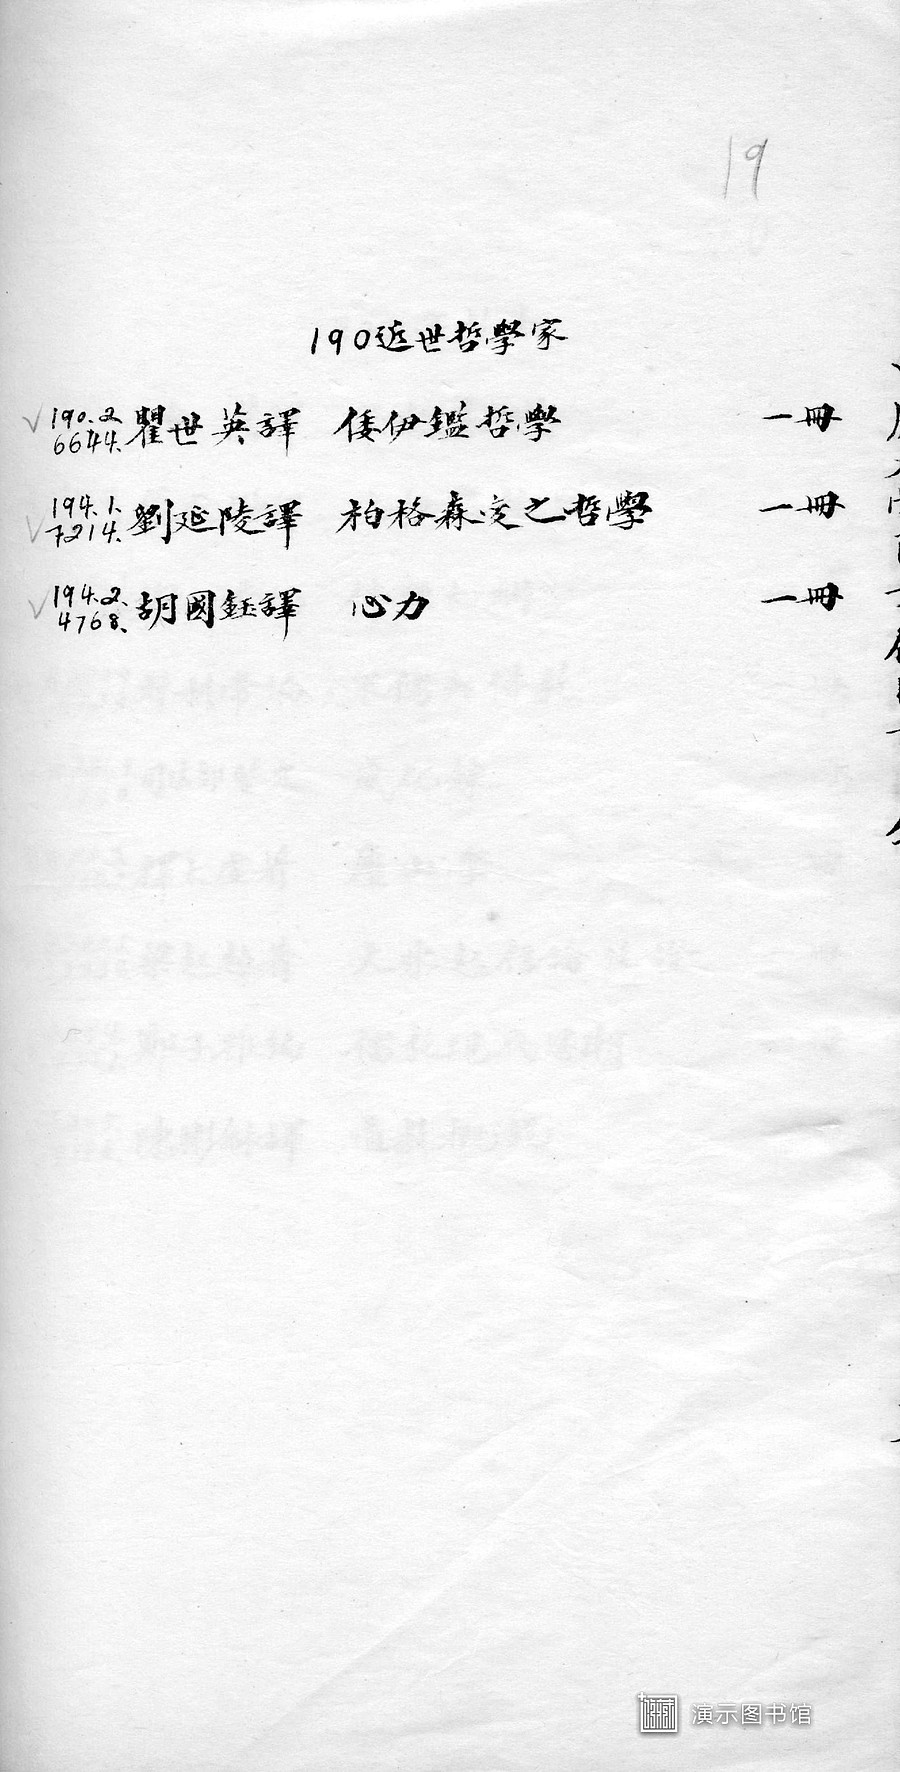 19
190近世哲學家
190.2. 6644. 瞿世英譯 倭伊鑑哲學 一冊
194.1. 7214. 劉延陵譯 柏格森变之哲學 一冊
194.2. 4768. 胡國鈺譯 心力 一冊
演示图书馆